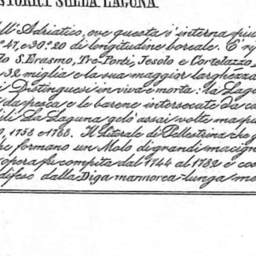 STORICI SULLA LAGUNA
ll'Adriatico, ove questa s'interna piu
°47, e 30°20 di longitudine boreale. E' ri
lo S. Erasmo, Tre Porti, Jesolo e Cortelazzo,
38 miglia e la sua maggior larghezza
i Distinguesi in viva e morta: la Lagu
da pesca e le barene intersecate dei ca
ili La Laguna gelò assai volte, ma p
0, 1758 e 1788. Il litorale di Pellestrina che
formano un Molo di grandi macign
opera fu compita dal 1744 al 1782 e co
difeso dalla Diga marmorea lunga me